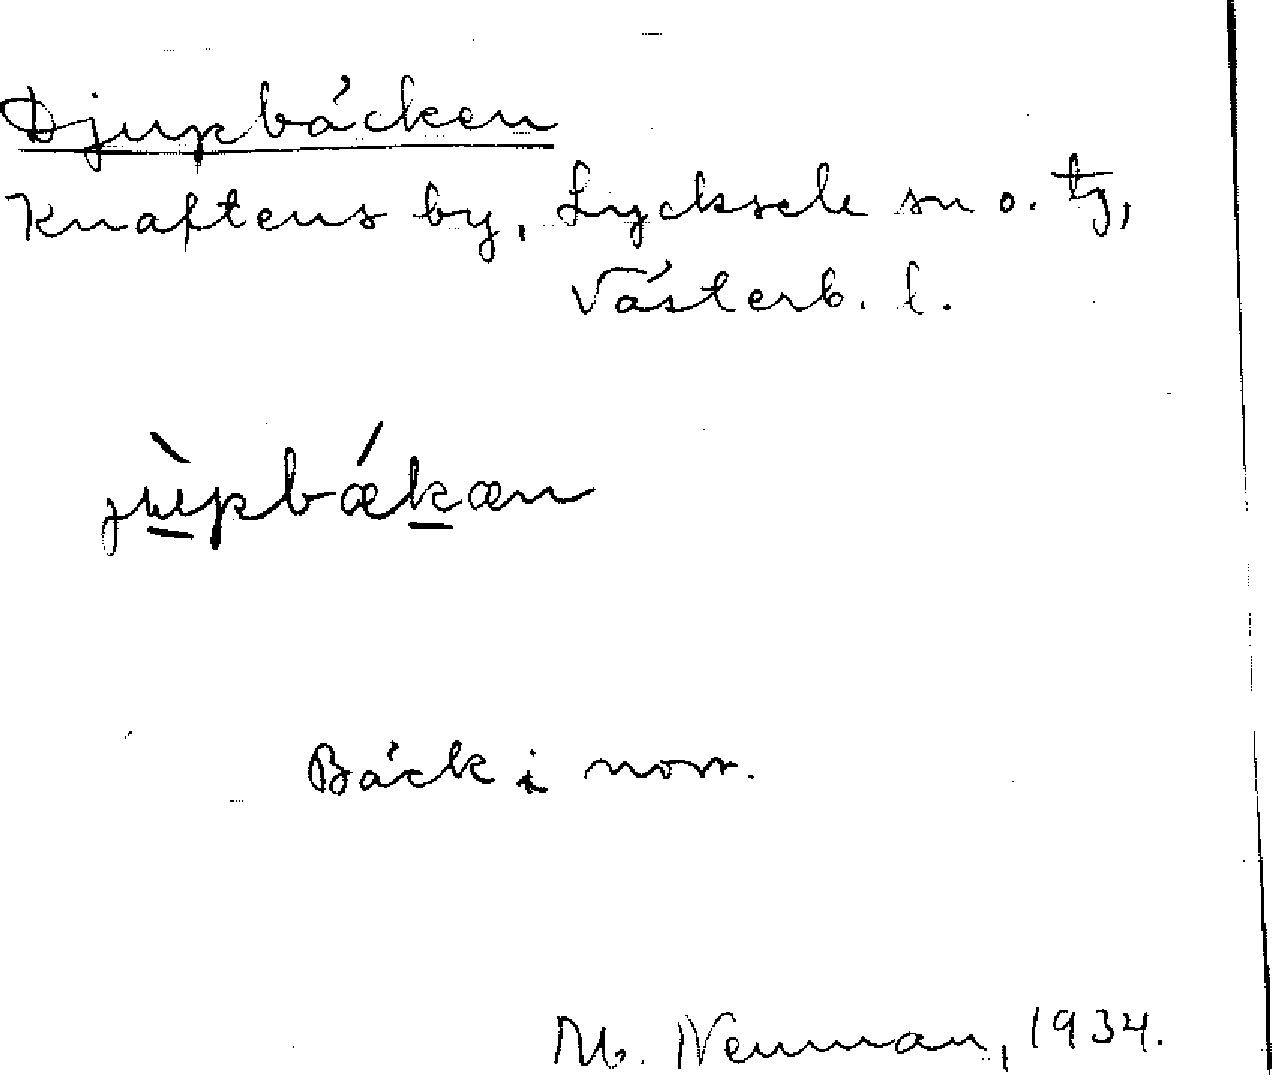 Djupbäcken
Knaftens by, Lycksele sn o. tg,
Västerb. l.
jùpbǽkæn
Bäck i norr.
M. Neuman, 1934.